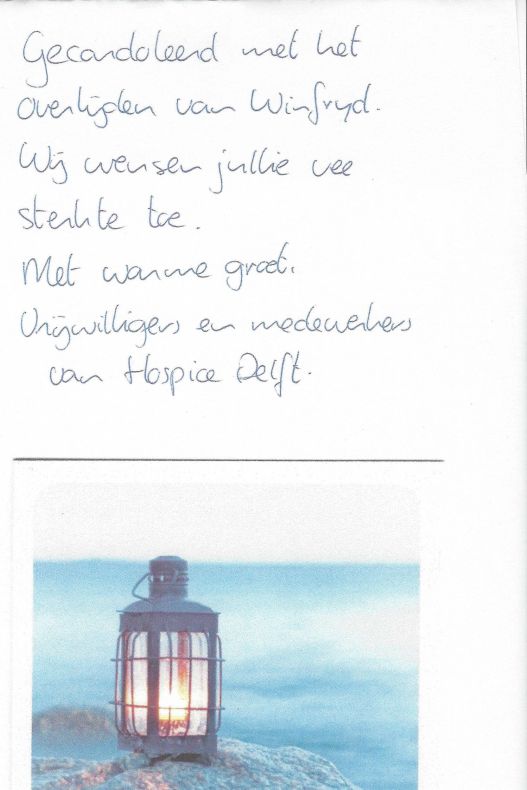 Gecondoleerd met het
overlijden van Winfryd.
Wij wensen jullie veel
sterkte toe.
Met warme groet.
Vrijwilligers en medewerkers
van Hospice Delft.